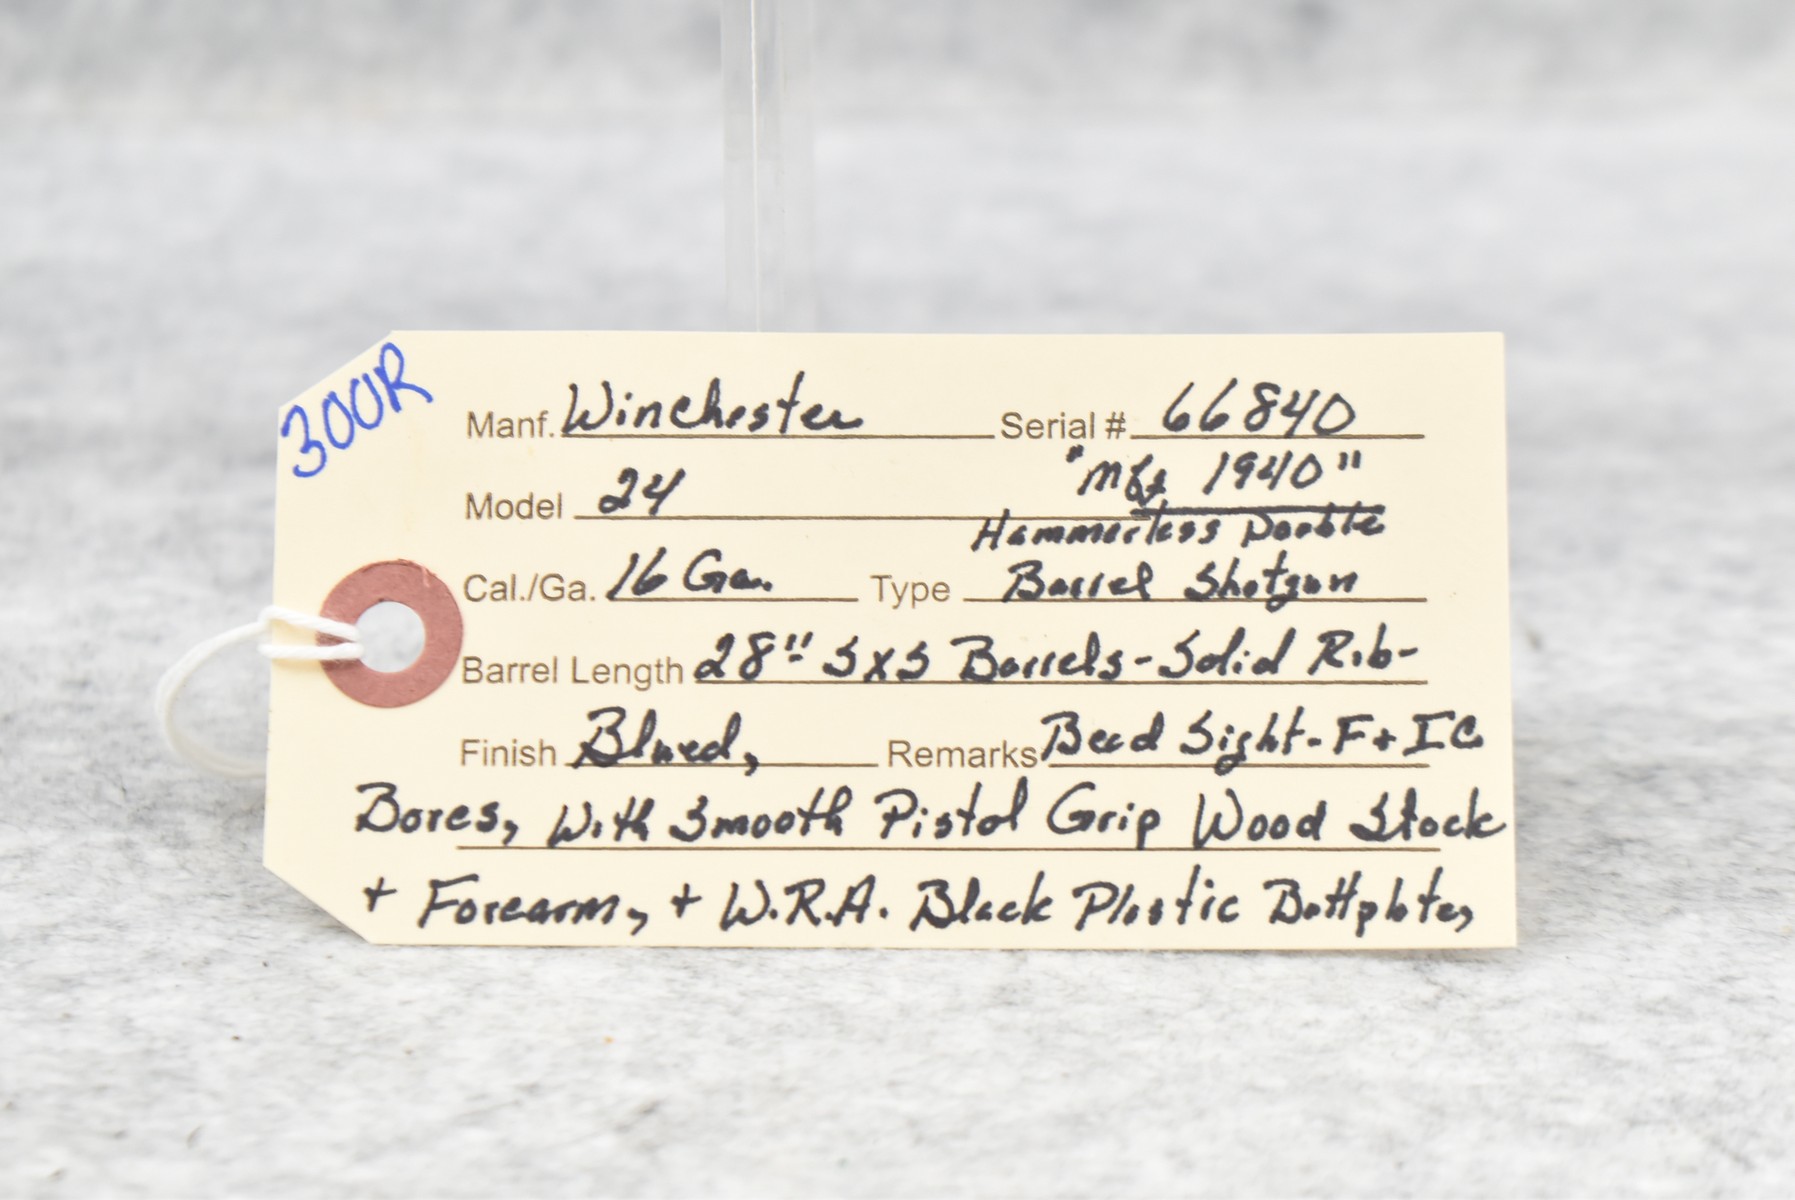 300R
Manf. Winchester Serial # 66840
Model 24 "Mfg 1940"
Hammerless Double
Cal./Ga. 16 Ga. Type Barrel Shotgun
Barrel Length 28" SXS Barrels-Solid Rib-
Finish Blued, Remarks Bead Sight-F+IC
Bores, With Smooth Pistol Grip Wood Stock
+ Forearm, + W.R.A. Black Plastic Buttplate,